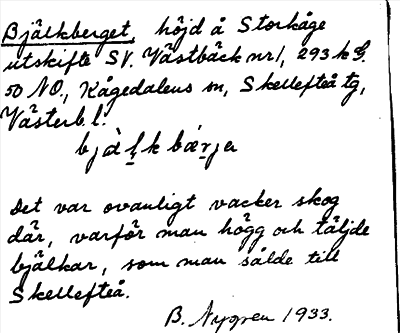 Bjälkberget, höjd å Storkåge
utskifte SV. Västbäck nr 1, 293 k G.
50 NO., Kågedalens sn, Skellefteå tg,
Västerb. l.
bjàḷk bæ´r̤ja
Det var ovanligt vacker skog
där, varför man högg och täljde
bjälkar, som man sålde till
Skellefteå.
B. Nygren 1933.